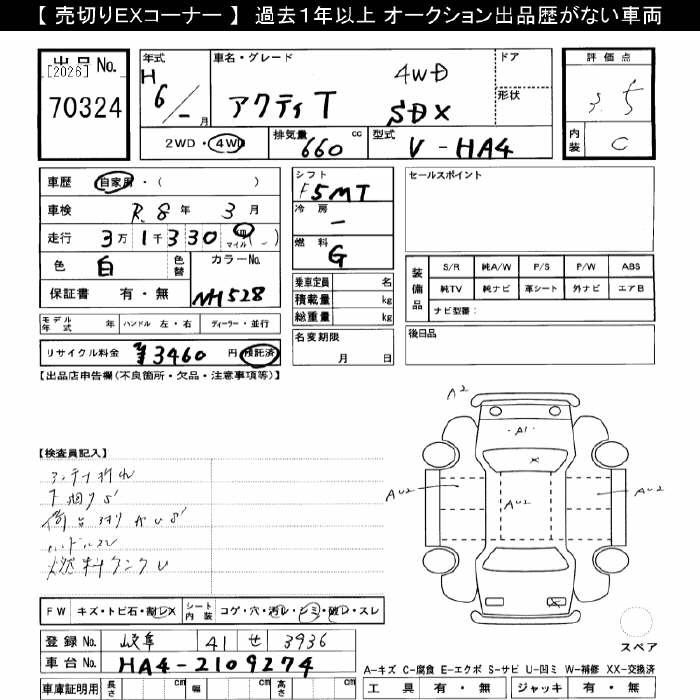 【 売切りEXコーナー 】 過去1年以上 オークション出品歴がない車両
出品 No.
[2026]
70324
年式
H 6/- 月
車名・グレード
4WD
アクティT SDX
ドア
形状
2WD・4WD
排気量 660 cc
型式 V-HA4
評価点
3.5
内装 C
車歴 自家用・( )
車検 R.8年 3月
走行 3万1千330 km マイル (-)
色 白 色替
カラーNo. NH528
保証書 有・無
シフト F5MT
冷房 -
燃料 G
乗車定員 名
積載量 kg
総重量 kg
セールスポイント
装備品
S/R 純A/W P/S P/W ABS
純TV 純ナビ 革シート 外ナビ エアB
ナビ型番:
モデル年式 年 ハンドル 左・右 ディーラー・並行
リサイクル料金 ¥3460 円 預託済
名変期限 月 日
後日品
【出品店申告欄(不良箇所・欠品・注意事項等)】
【検査員記入】
アンテナ折れ
下廻りS
ハンドルスレ
燃料タンクU
A2
A1
X
AU2
AU2
AU2
スペア
FW キズ・トビ石・割レX
シート内装 コゲ・穴・汚レ・シミ・破レ・スレ
登録No. 岐阜 41 せ 3936
車台No. HA4-2109274
車庫証明用 長さ cm 幅 cm 高さ cm
A-キズ C-腐食 E-エクボ S-サビ U-凹ミ W-補修 XX-交換済
工具 有・無 ジャッキ 有・無